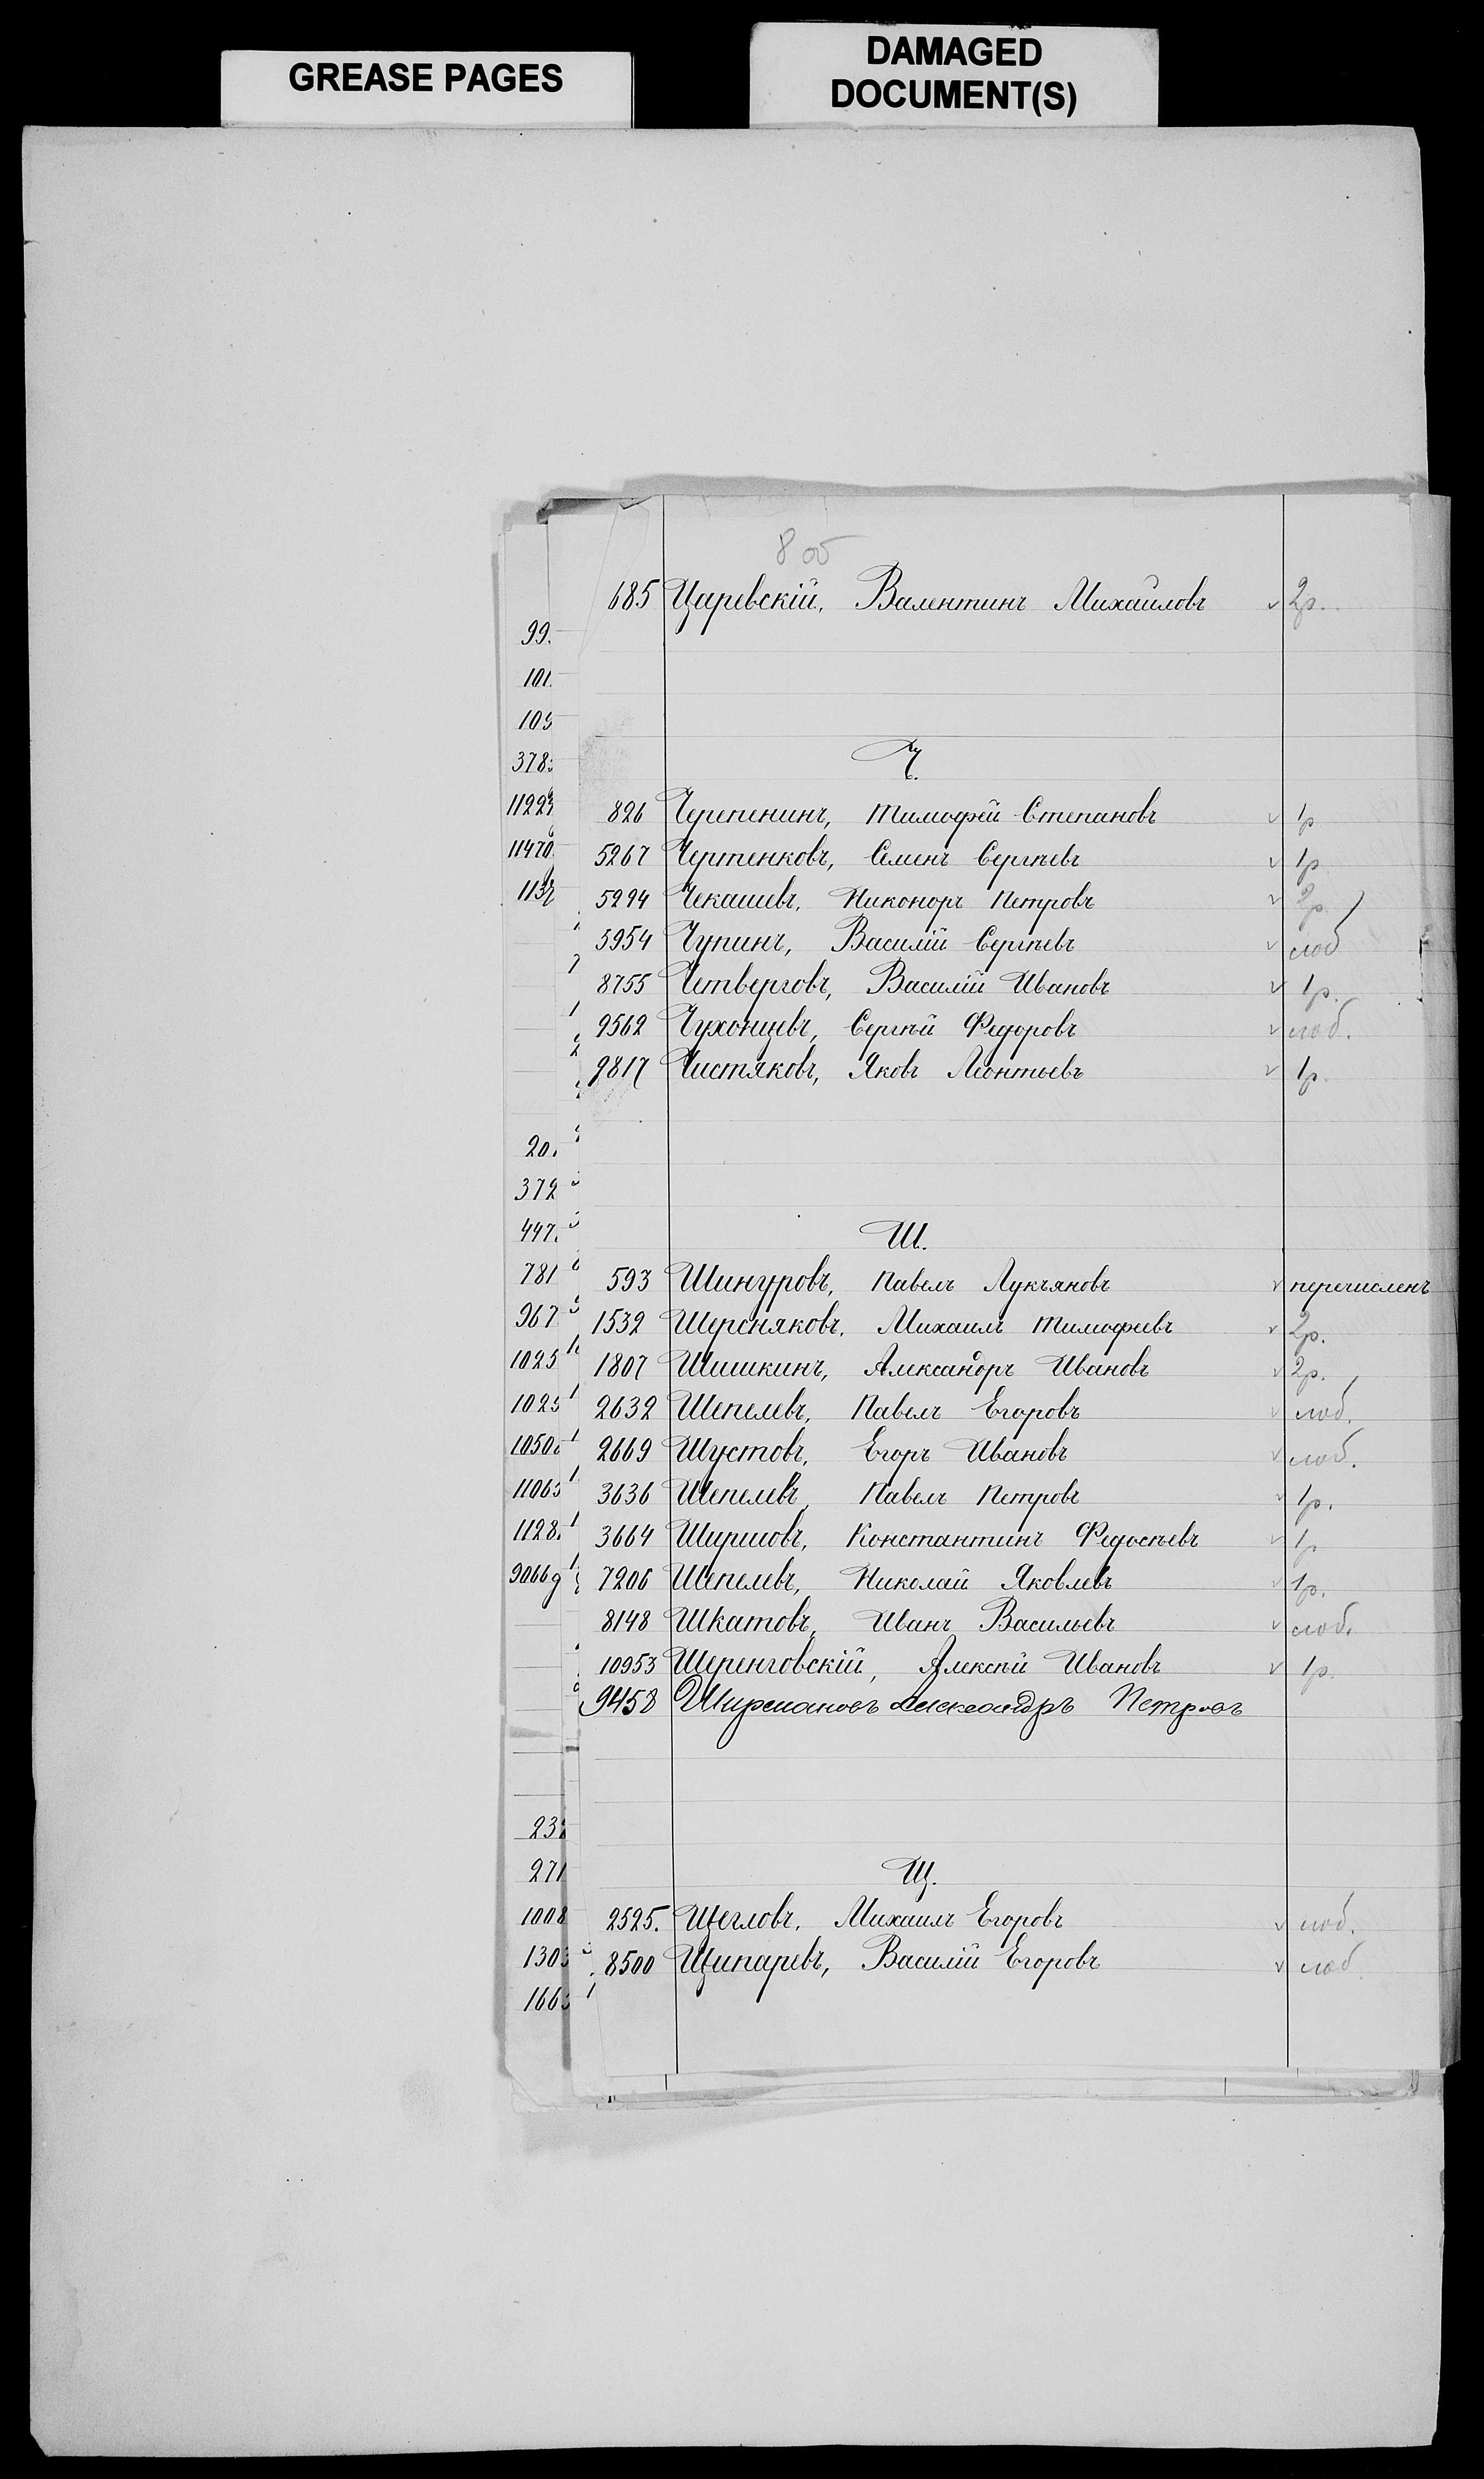 GREASE PAGES
DAMAGED
DOCUMENT(S)
8 об
685 Царевскій, Валентинъ Михайловъ v 2р.
99.
101.
103
378
Ч.
1122 826 Черепенинъ, Тимофей Степановъ v 1р
11470 5267 Чертенковъ, Семенъ Сергѣевъ v 1р
113 5294 Чекашевъ, Никоноръ Петровъ v 2р
5954 Чупинъ, Василій Сергѣевъ v слоб
8755 Четверговъ, Василій Ивановъ v 1р.
9562 Чухонцевъ, Сергѣй Федоровъ v слоб.
9817 Чистяковъ, Яковъ Леонтьевъ v 1р.
20
372
447
Ш.
781 593 Шинуровъ, Павелъ Лукъяновъ v перечисленъ
967 1532 Шерсняковъ, Михаилъ Тимофеевъ v 2р.
1025 1807 Шишкинъ, Александръ Ивановъ v 2р.
1025 2632 Шепелевъ, Павелъ Егоровъ v слоб.
1050 2669 Шустовъ, Егоръ Ивановъ v слоб.
1106 3636 Шепелевъ, Павелъ Петровъ v 1р.
1128 3664 Ширшовъ, Константинъ Федосѣевъ v 1р
9066 7206 Шепелевъ, Николай Яковлевъ v 1р.
8148 Шкатовъ, Иванъ Васильевъ v слоб.
10953 Шеренговскій, Алексѣй Ивановъ v 1р.
9458 Ширмановъ Александръ Петровъ
232
271
Щ.
1008 2525. Щегловъ, Михаилъ Егоровъ v слоб.
1303 8500 Щипаревъ, Василій Егоровъ v слоб
166